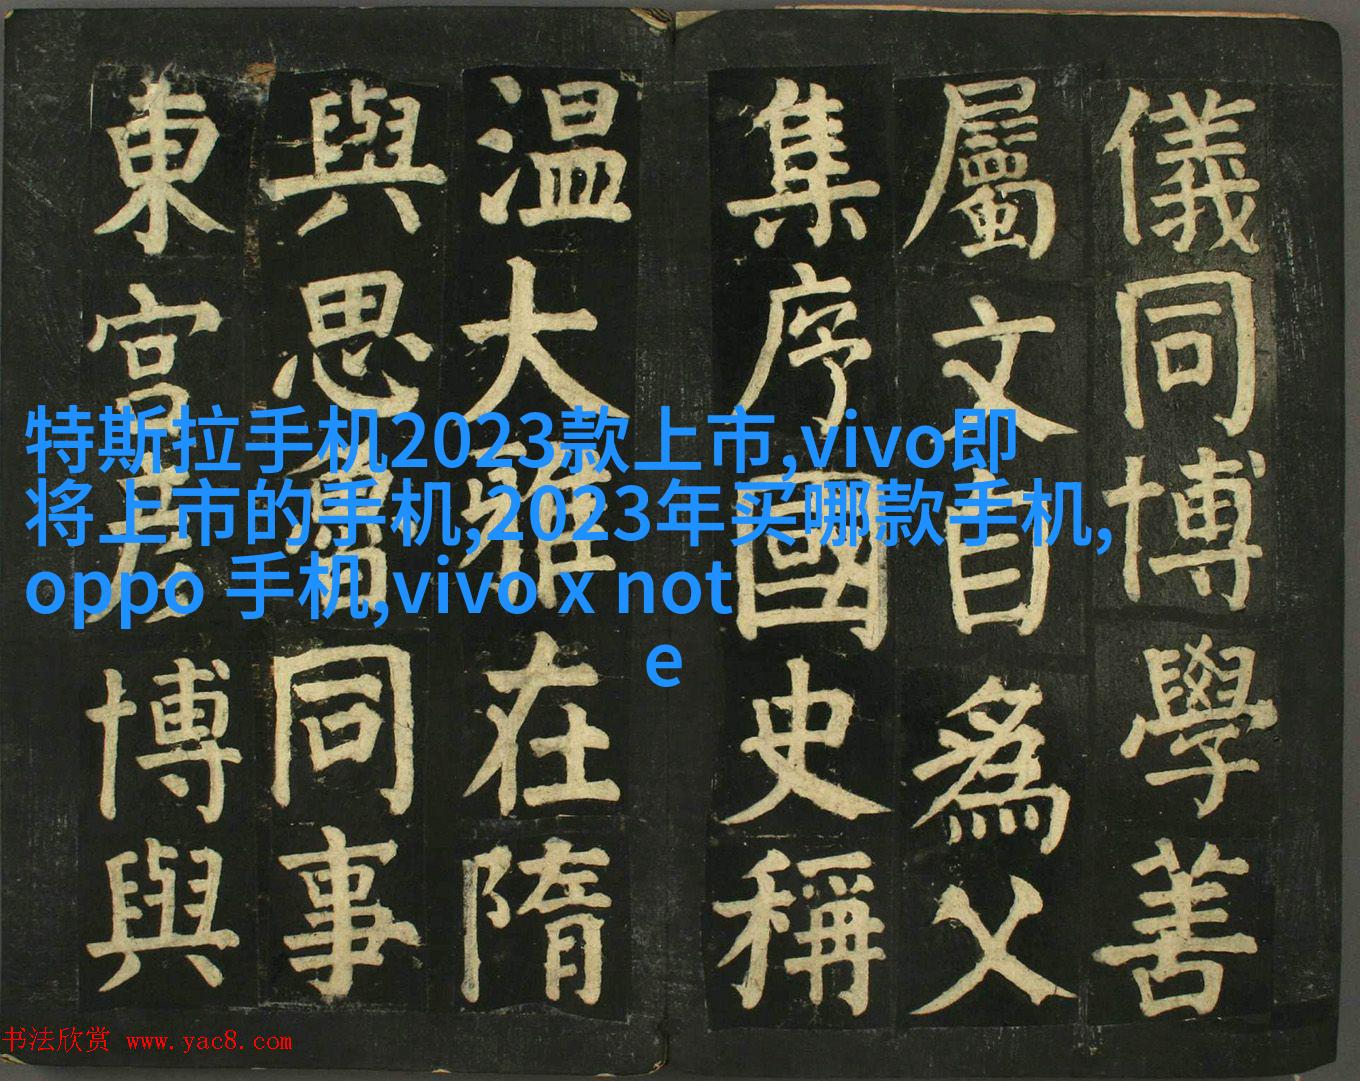 儀同博學善
屬文自爲父
集序國史稱
温大雅在隋
與思魯同事
東宮彥博與
特斯拉手机2023款上市,vivo即
将上市的手机,2023年买哪款手机,
oppo 手机,vivo x not
e
书法欣赏 www.yac8.com